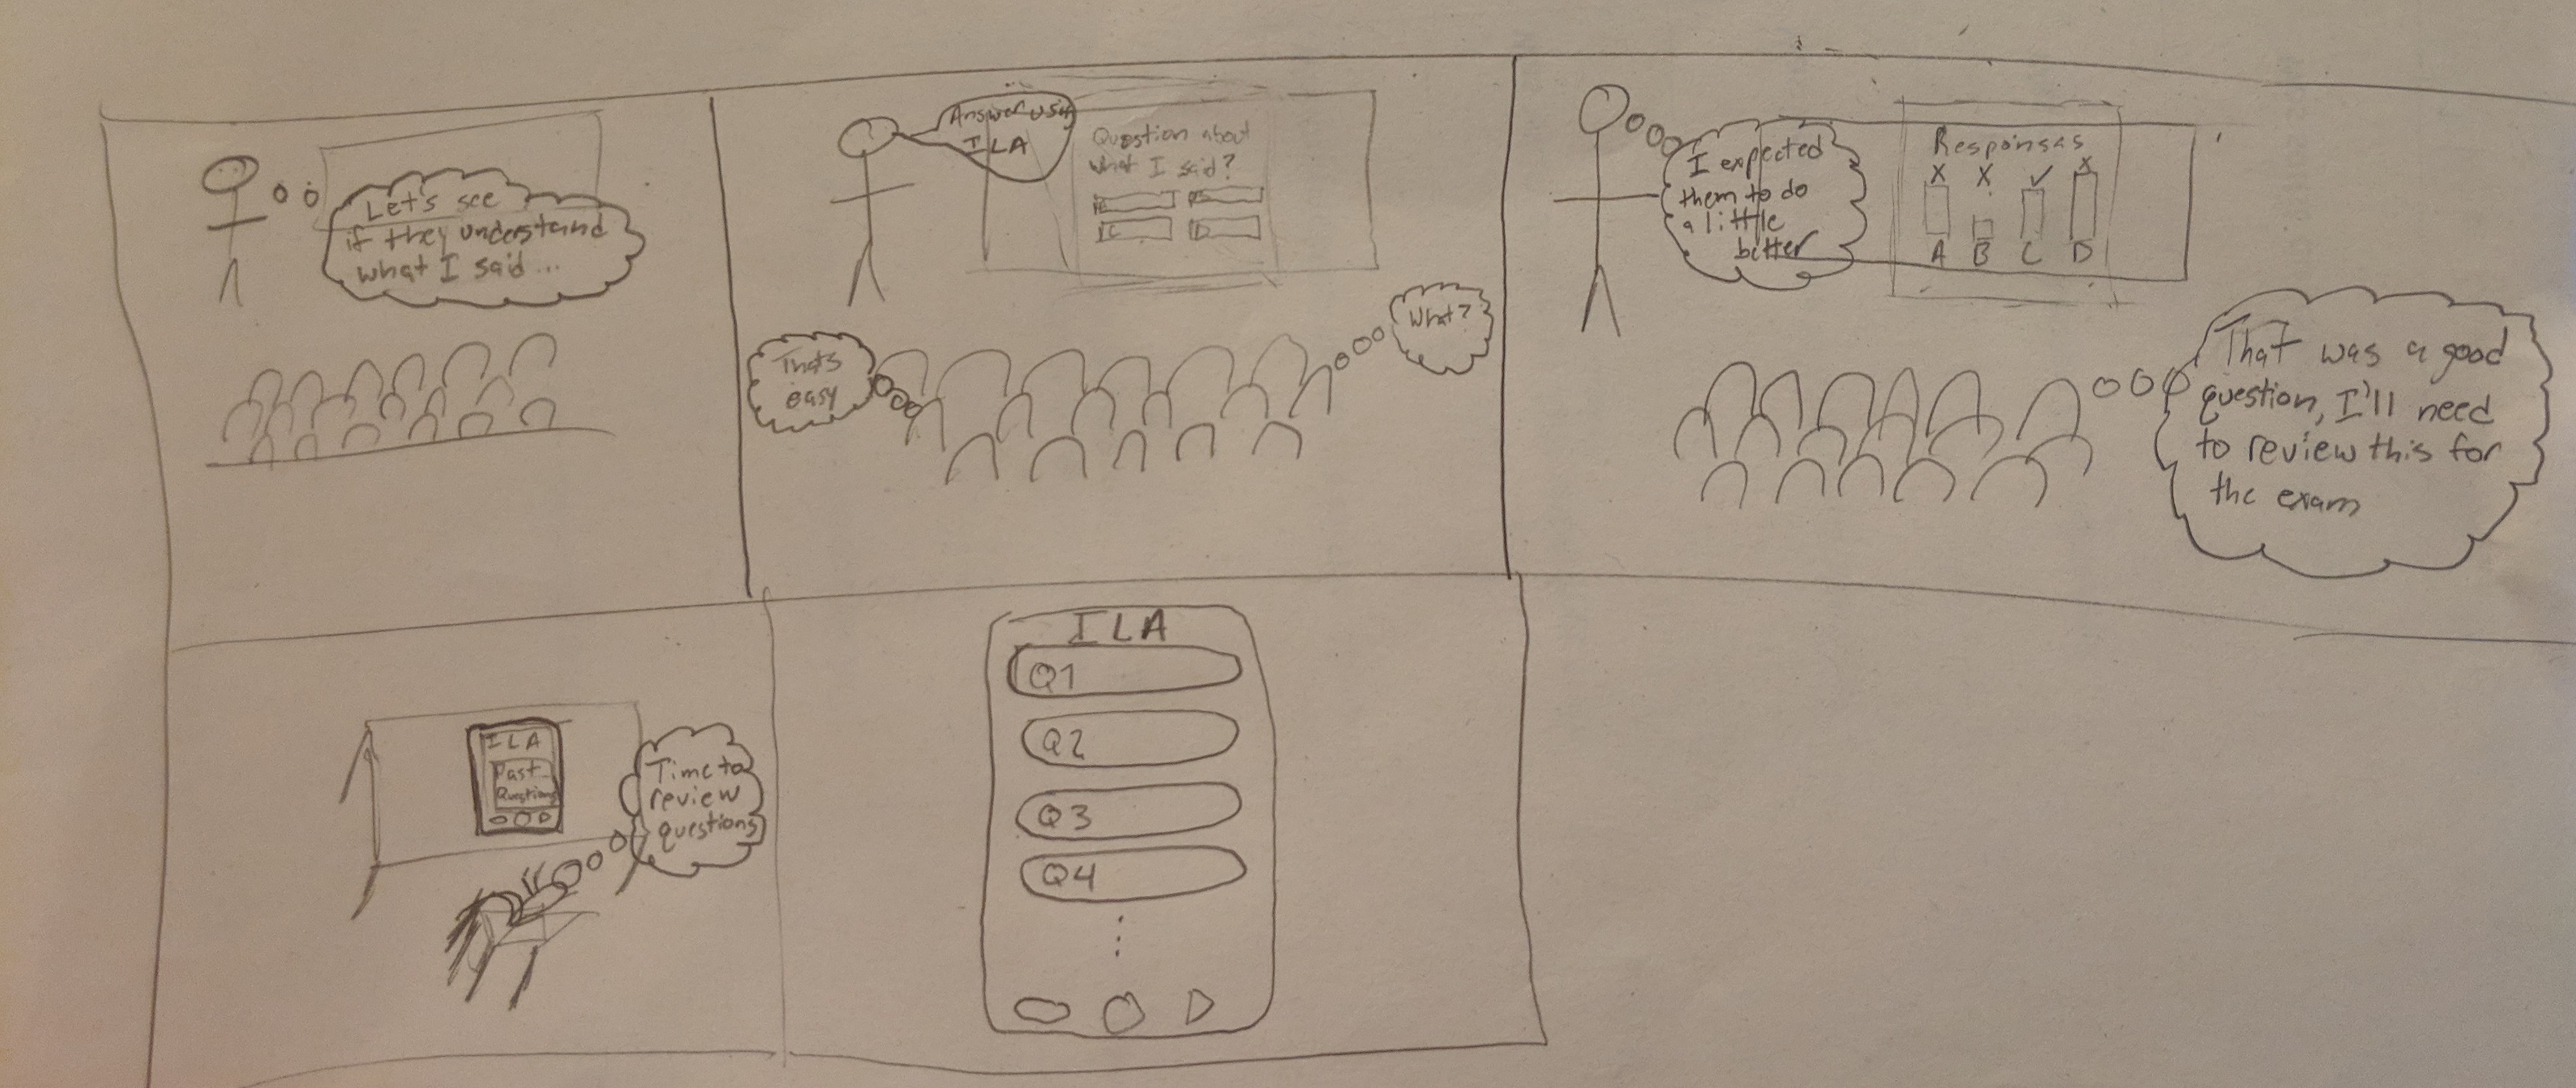 Let's see
if they understand
what I said...
Answer using
ILA
Question about
what I said?
A
B
C
D
Thats
easy
What?
I expected
them to do
a little
better
Responses
X X ✓ X
A B C D
That was a good
question, I'll need
to review this for
the exam
ILA
Past
Questions
Time to
review
questions
ILA
Q1
Q2
Q3
Q4